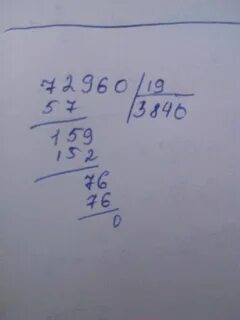 72960 19
57 3840
159
152
76
76
0